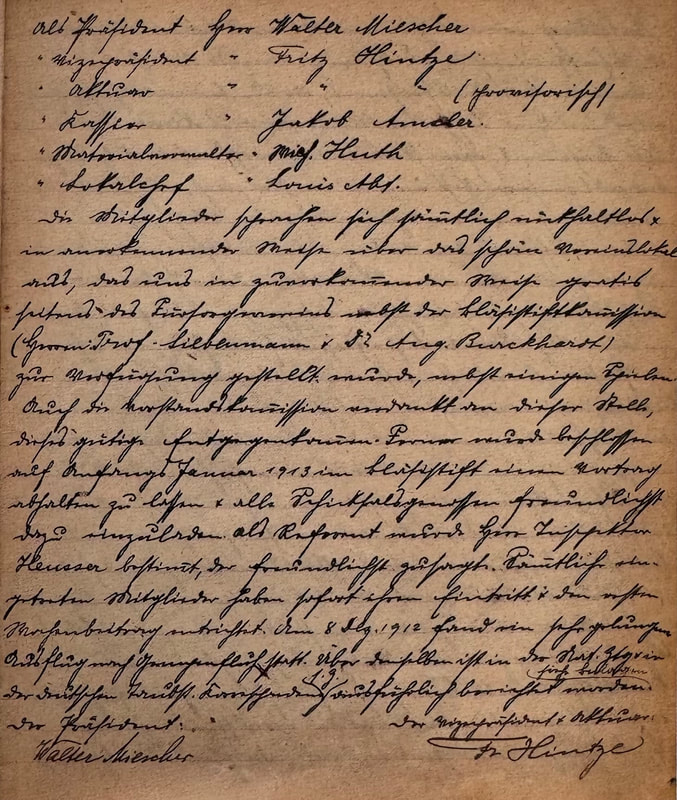 als Präsident Herr Walter Miescher
" Vizepräsident " Fritz Hintze
" Aktuar " " " (provisorisch)
" Kassier " Jakob Amsler.
" Materialverwalter " Wilh. Huth
" Lokalchef " Louis Abt.
Die Mitglieder sprachen sich sämtlich rückhaltlos &
in anerkennender Weise über das schöne Vereinslokal
aus, das uns in zuvorkommender Weise gratis
seitens des Fürsorgevereins nebst der Bläsistiftkommission
(Herren Prof. Siebenmann & Dr. Aug. Burckhardt)
zur Verfügung gestellt wurde, nebst einigen Spielen.
Auch die Vorstandskommission verdankt an dieser Stelle,
dieses gütige Entgegenkommen. Ferner wurde beschlossen
auf Anfangs Januar 1913 im Bläsistift einen Vortrag
abhalten zu lassen & alle Schicksalsgenossen freundlichst
dazu einzuladen. Als Referent wurde Herr Inspektor
Heusser bestimmt, der freundlichst zusagte. Sämtliche ein-
getreten Mitglieder haben sofort ihren Eintritt & den ersten
Wochenbeitrag entrichtet. Am 8 Dez. 1912 fand ein sehr gelungen
Ausflug nach Gempenfluh statt. Über denselben ist in der Nat. Ztg & in
der deutschen Taubst. Korrespondenz ausführlich berichtet worden.
siehe Beilagen
Der Präsident: Der Vizepräsident & Aktuar:
Walter Miescher Fr Hintze